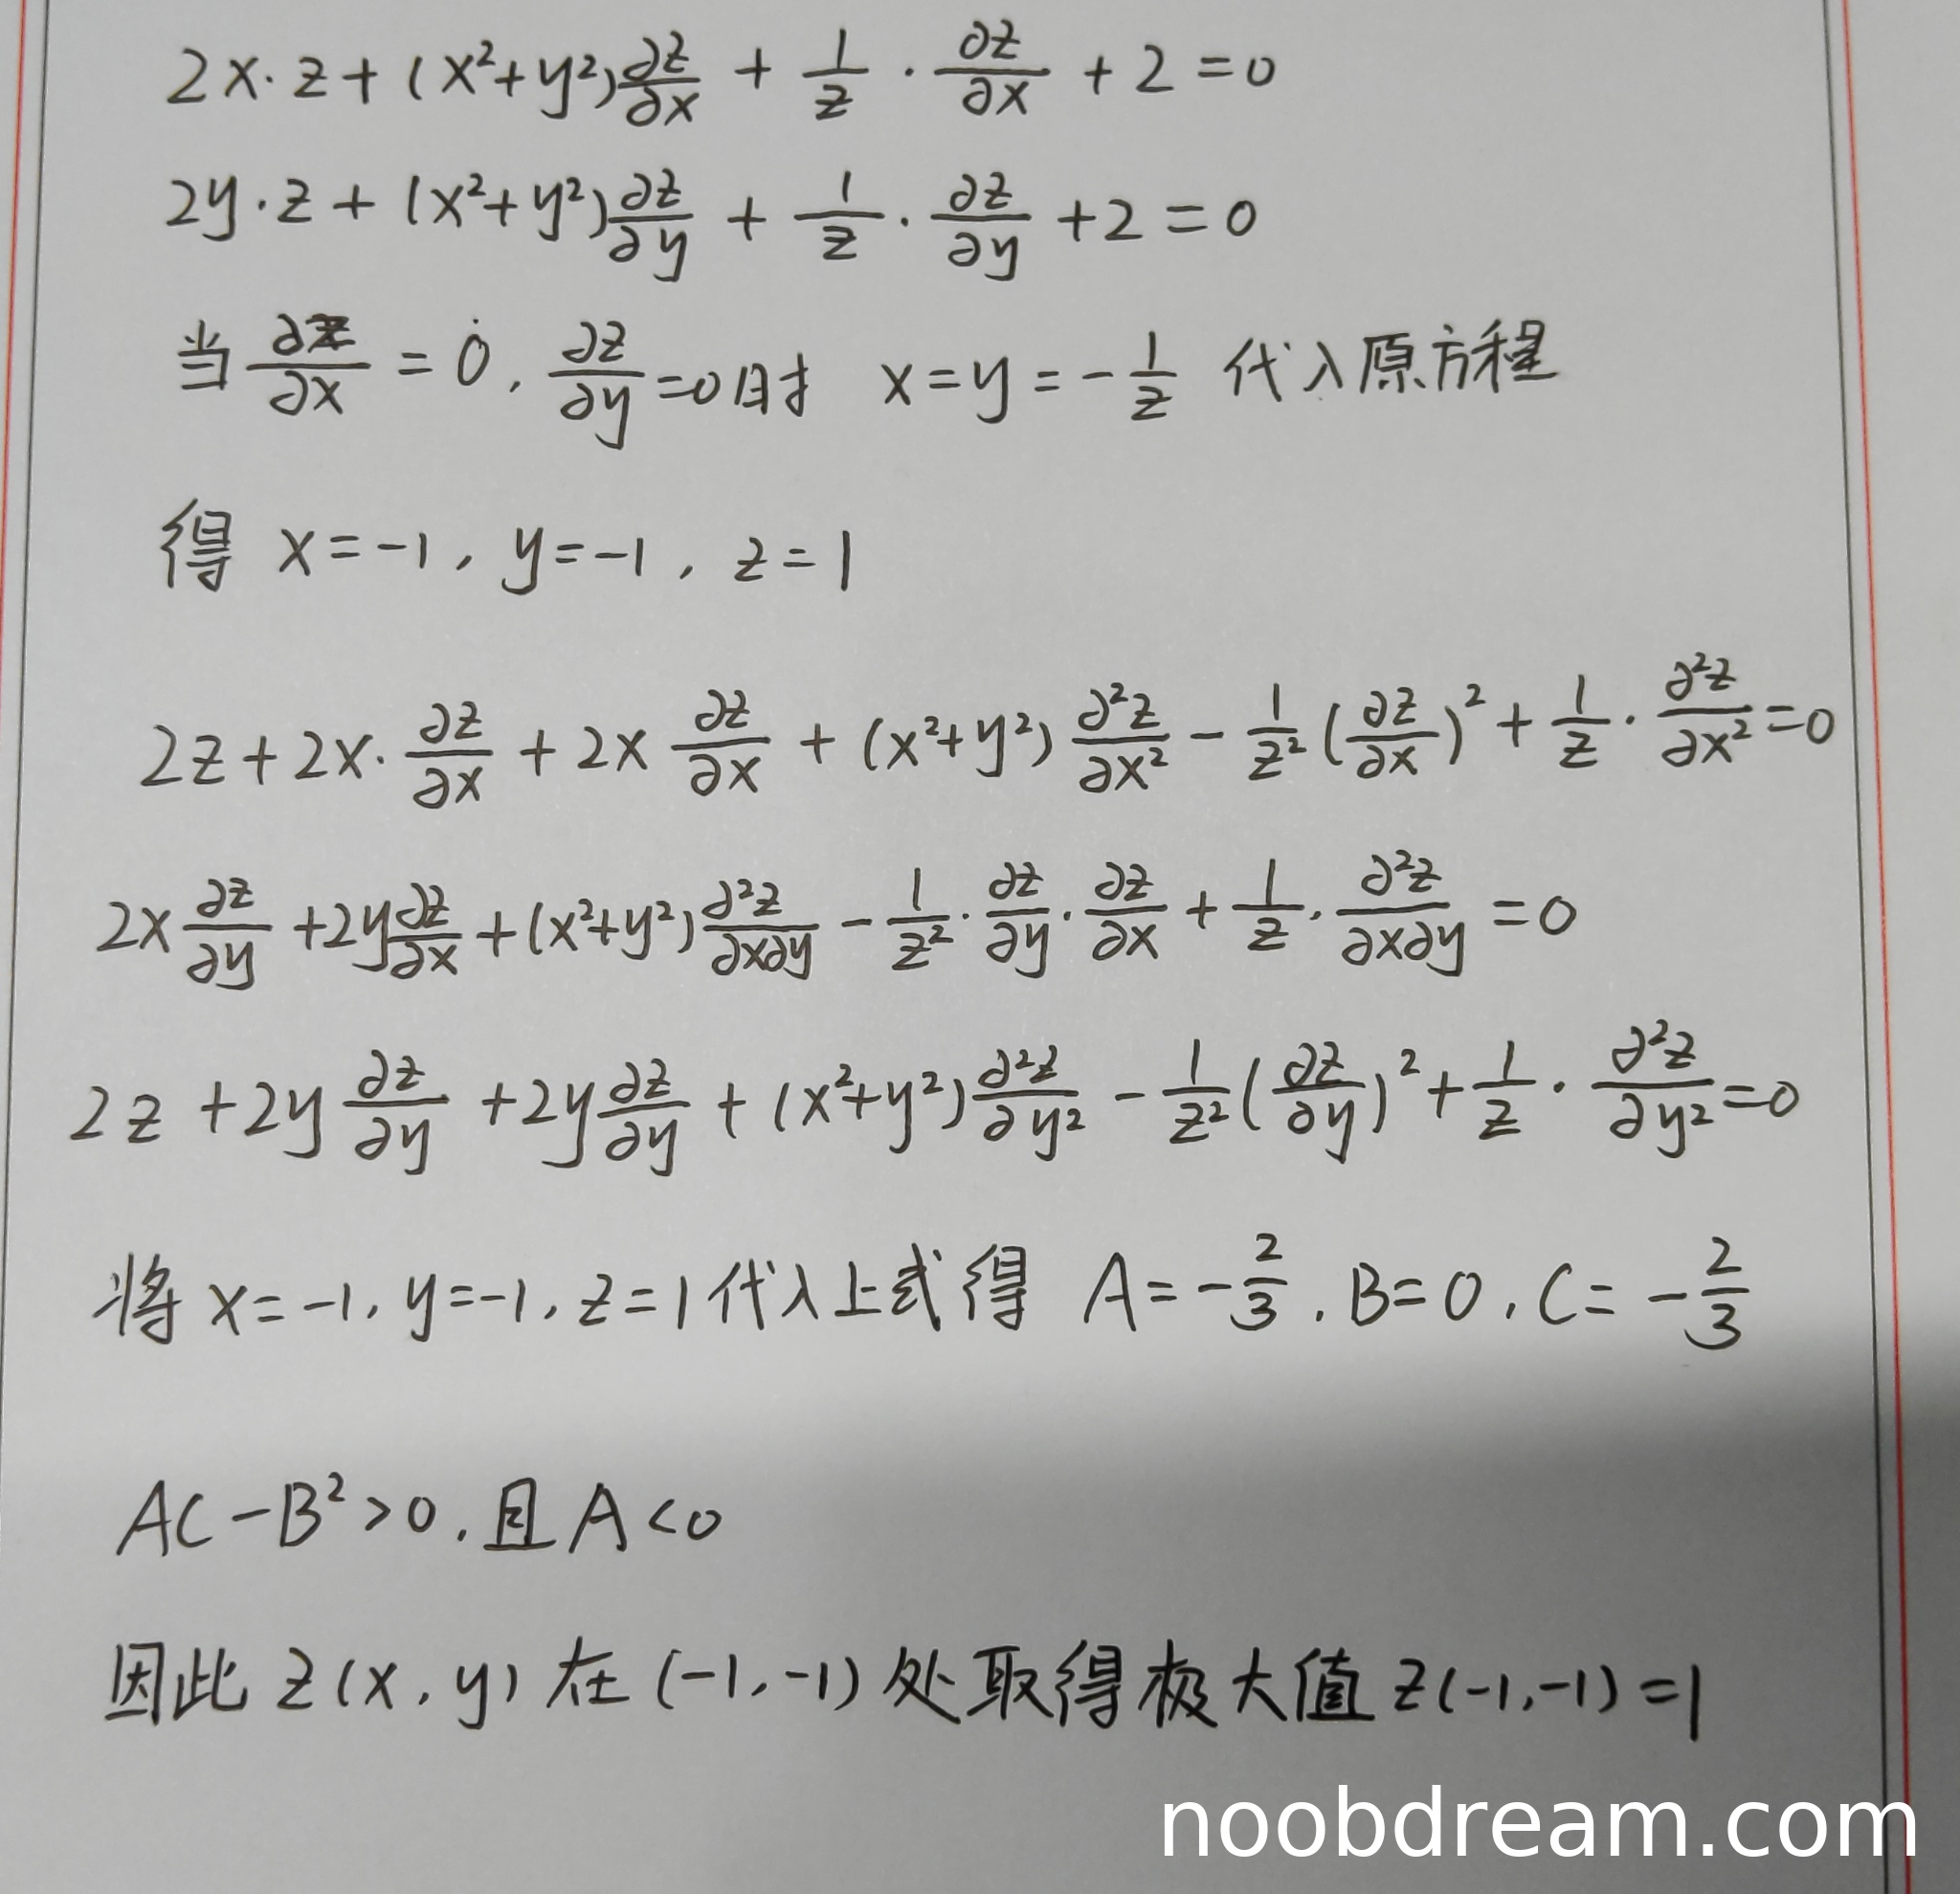 2x·z+(x²+y²)∂z/∂x + 1/z · ∂z/∂x + 2 = 0
2y·z + (x²+y²)∂z/∂y + 1/z · ∂z/∂y + 2 = 0
当 ∂z/∂x = 0, ∂z/∂y = 0时 x = y = -1/z 代入原方程
得 x = -1, y = -1, z = 1
2z + 2x·∂z/∂x + 2x ∂z/∂x + (x²+y²) ∂²z/∂x² - 1/z² (∂z/∂x)² + 1/z · ∂²z/∂x² = 0
2x ∂z/∂y + 2y ∂z/∂x + (x²+y²) ∂²z/∂x∂y - 1/z² · ∂z/∂y · ∂z/∂x + 1/z · ∂²z/∂x∂y = 0
2z + 2y ∂z/∂y + 2y ∂z/∂y + (x²+y²) ∂²z/∂y² - 1/z² (∂z/∂y)² + 1/z · ∂²z/∂y² = 0
将 x = -1, y = -1, z = 1 代入上式得 A = -2/3, B = 0, C = -2/3
AC - B² > 0, 且 A < 0
因此 z(x, y) 在 (-1, -1) 处取得极大值 z(-1, -1) = 1
noobdream.com